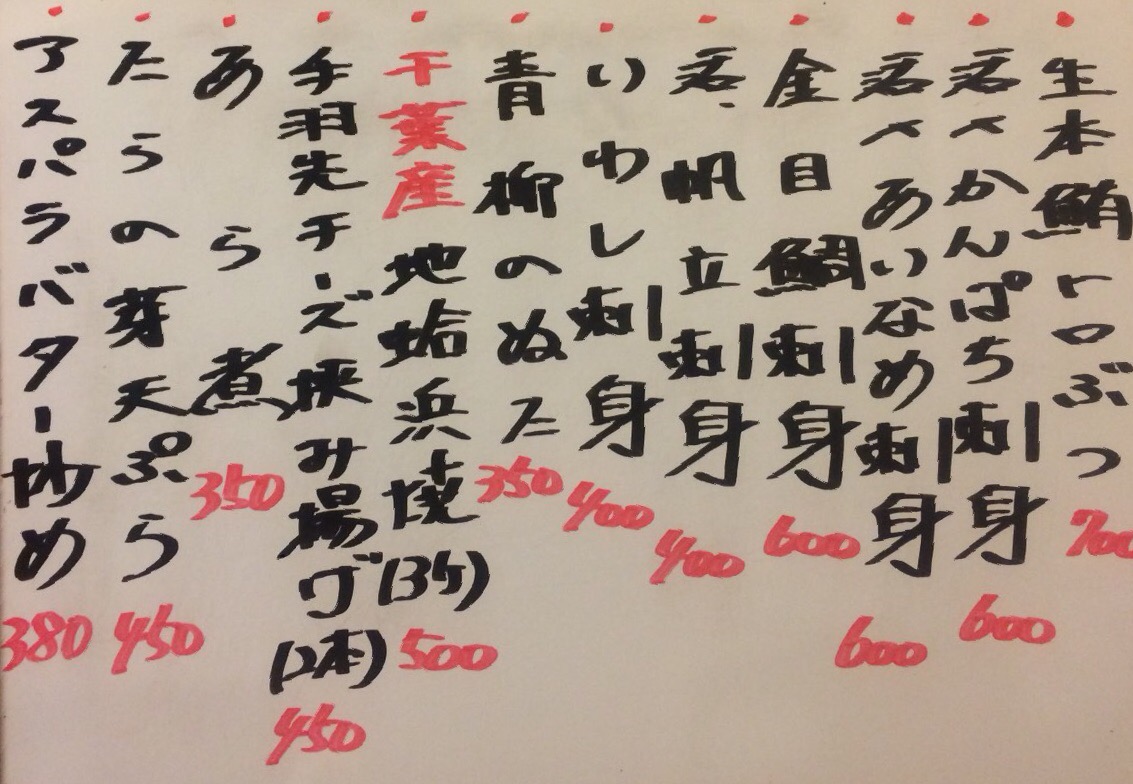 生本鮪トロぶつ 700
活〆かんぱち刺身 600
活〆あいなめ刺身 600
金目鯛刺身 600
活帆立刺身 400
いわし刺身 400
青柳のぬた 350
千葉産地蛤浜焼(3ヶ) 500
手羽先チーズ挟み揚げ(2本) 450
あら煮 350
たらの芽天ぷら 450
アスパラバター炒め 380